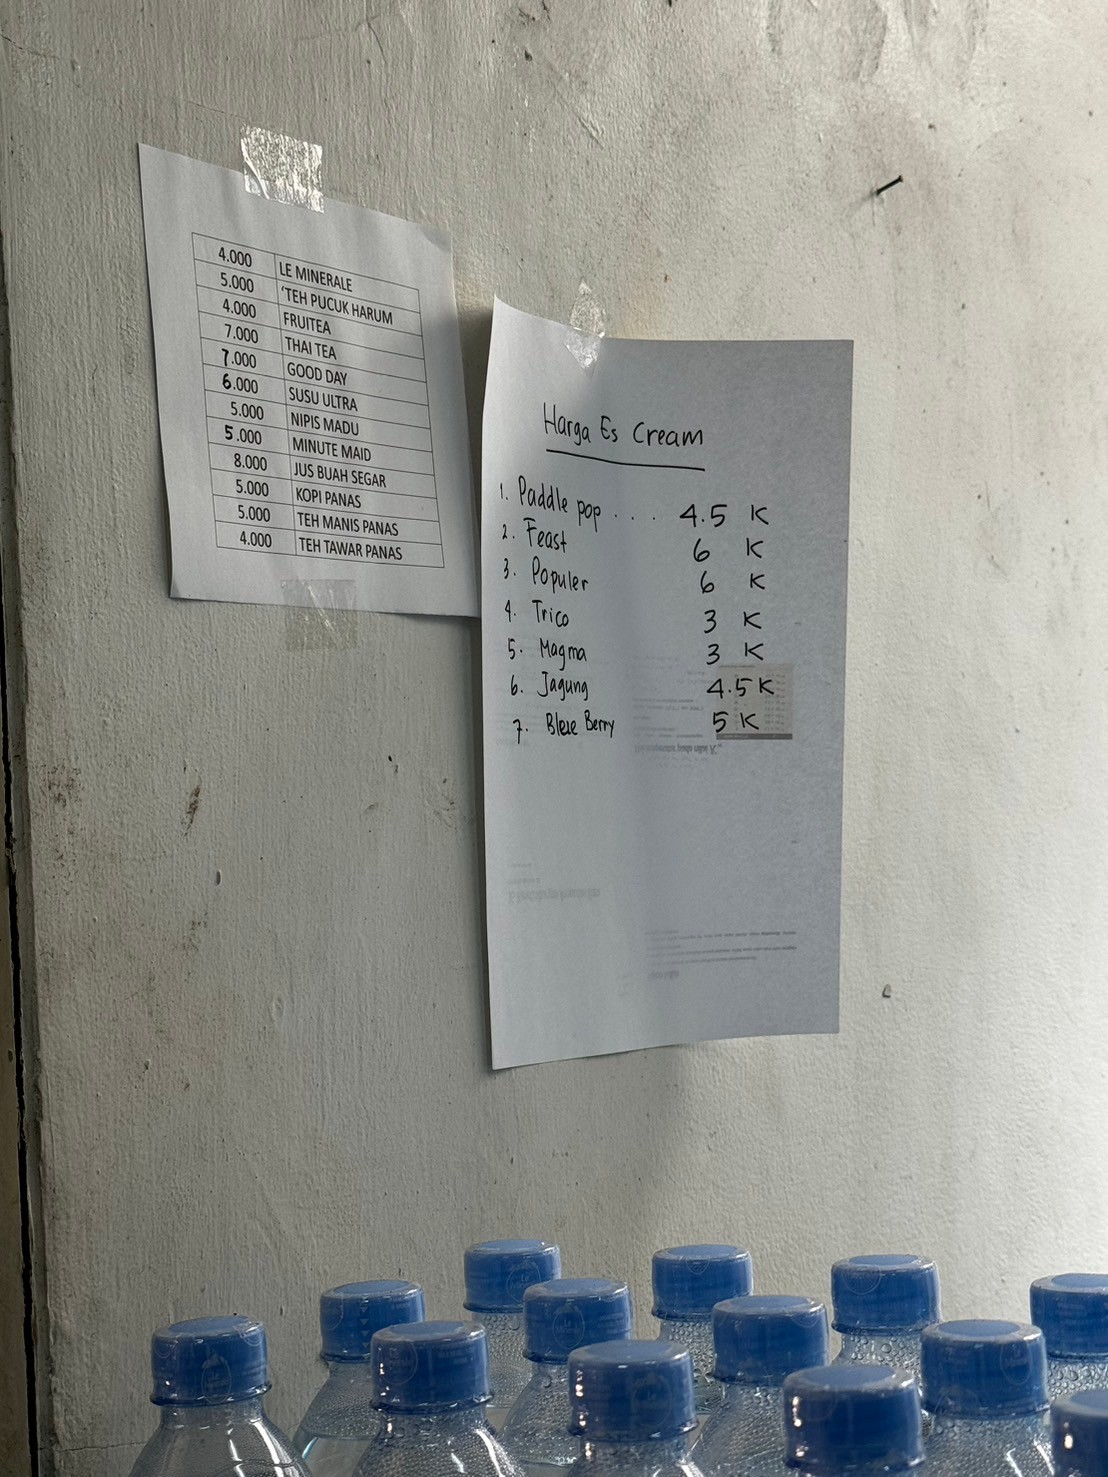 4.000 LE MINERALE
5.000 'TEH PUCUK HARUM
4.000 FRUITEA
7.000 THAI TEA
7.000 GOOD DAY
6.000 SUSU ULTRA
5.000 NIPIS MADU
5.000 MINUTE MAID
8.000 JUS BUAH SEGAR
5.000 KOPI PANAS
5.000 TEH MANIS PANAS
4.000 TEH TAWAR PANAS
Harga Es Cream
1. Paddle pop . . . 4.5 K
2. Feast 6 K
3. Populer 6 K
4. Trico 3 K
5. Magma 3 K
6. Jagung 4.5 K
7. Blue Berry 5 K